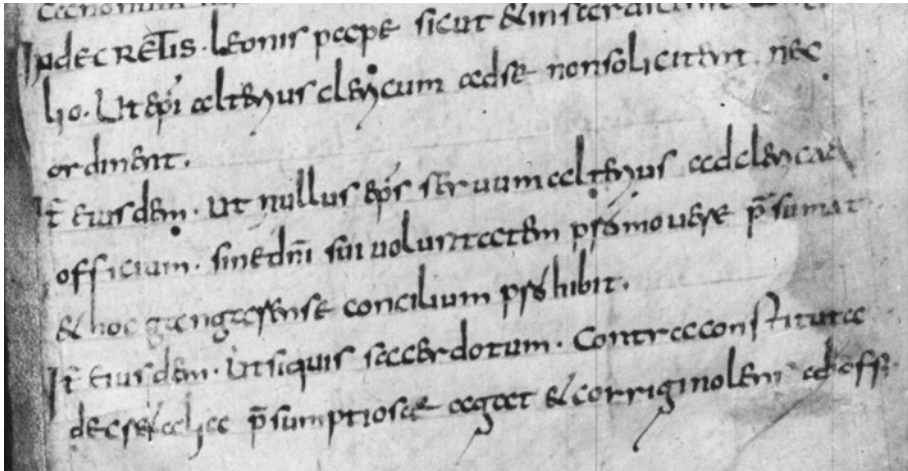 In decretis. Leonis pape sicut & in
lio. Ut ep̄i alterius clericum ad se non solicitent nec
ordinent.
It̄ eiusdem. Ut nullus ep̄s seruum alterius ad
officium. sine dn̄i sui uoluntatem promouere p̄sumat
& hoc gangarense concilium prohibit.
It̄ eiusdem. Ut siquis sacerdotum. Contra constituta
decretalia p̄sumptiosae agat & corrigi nolens ab offi